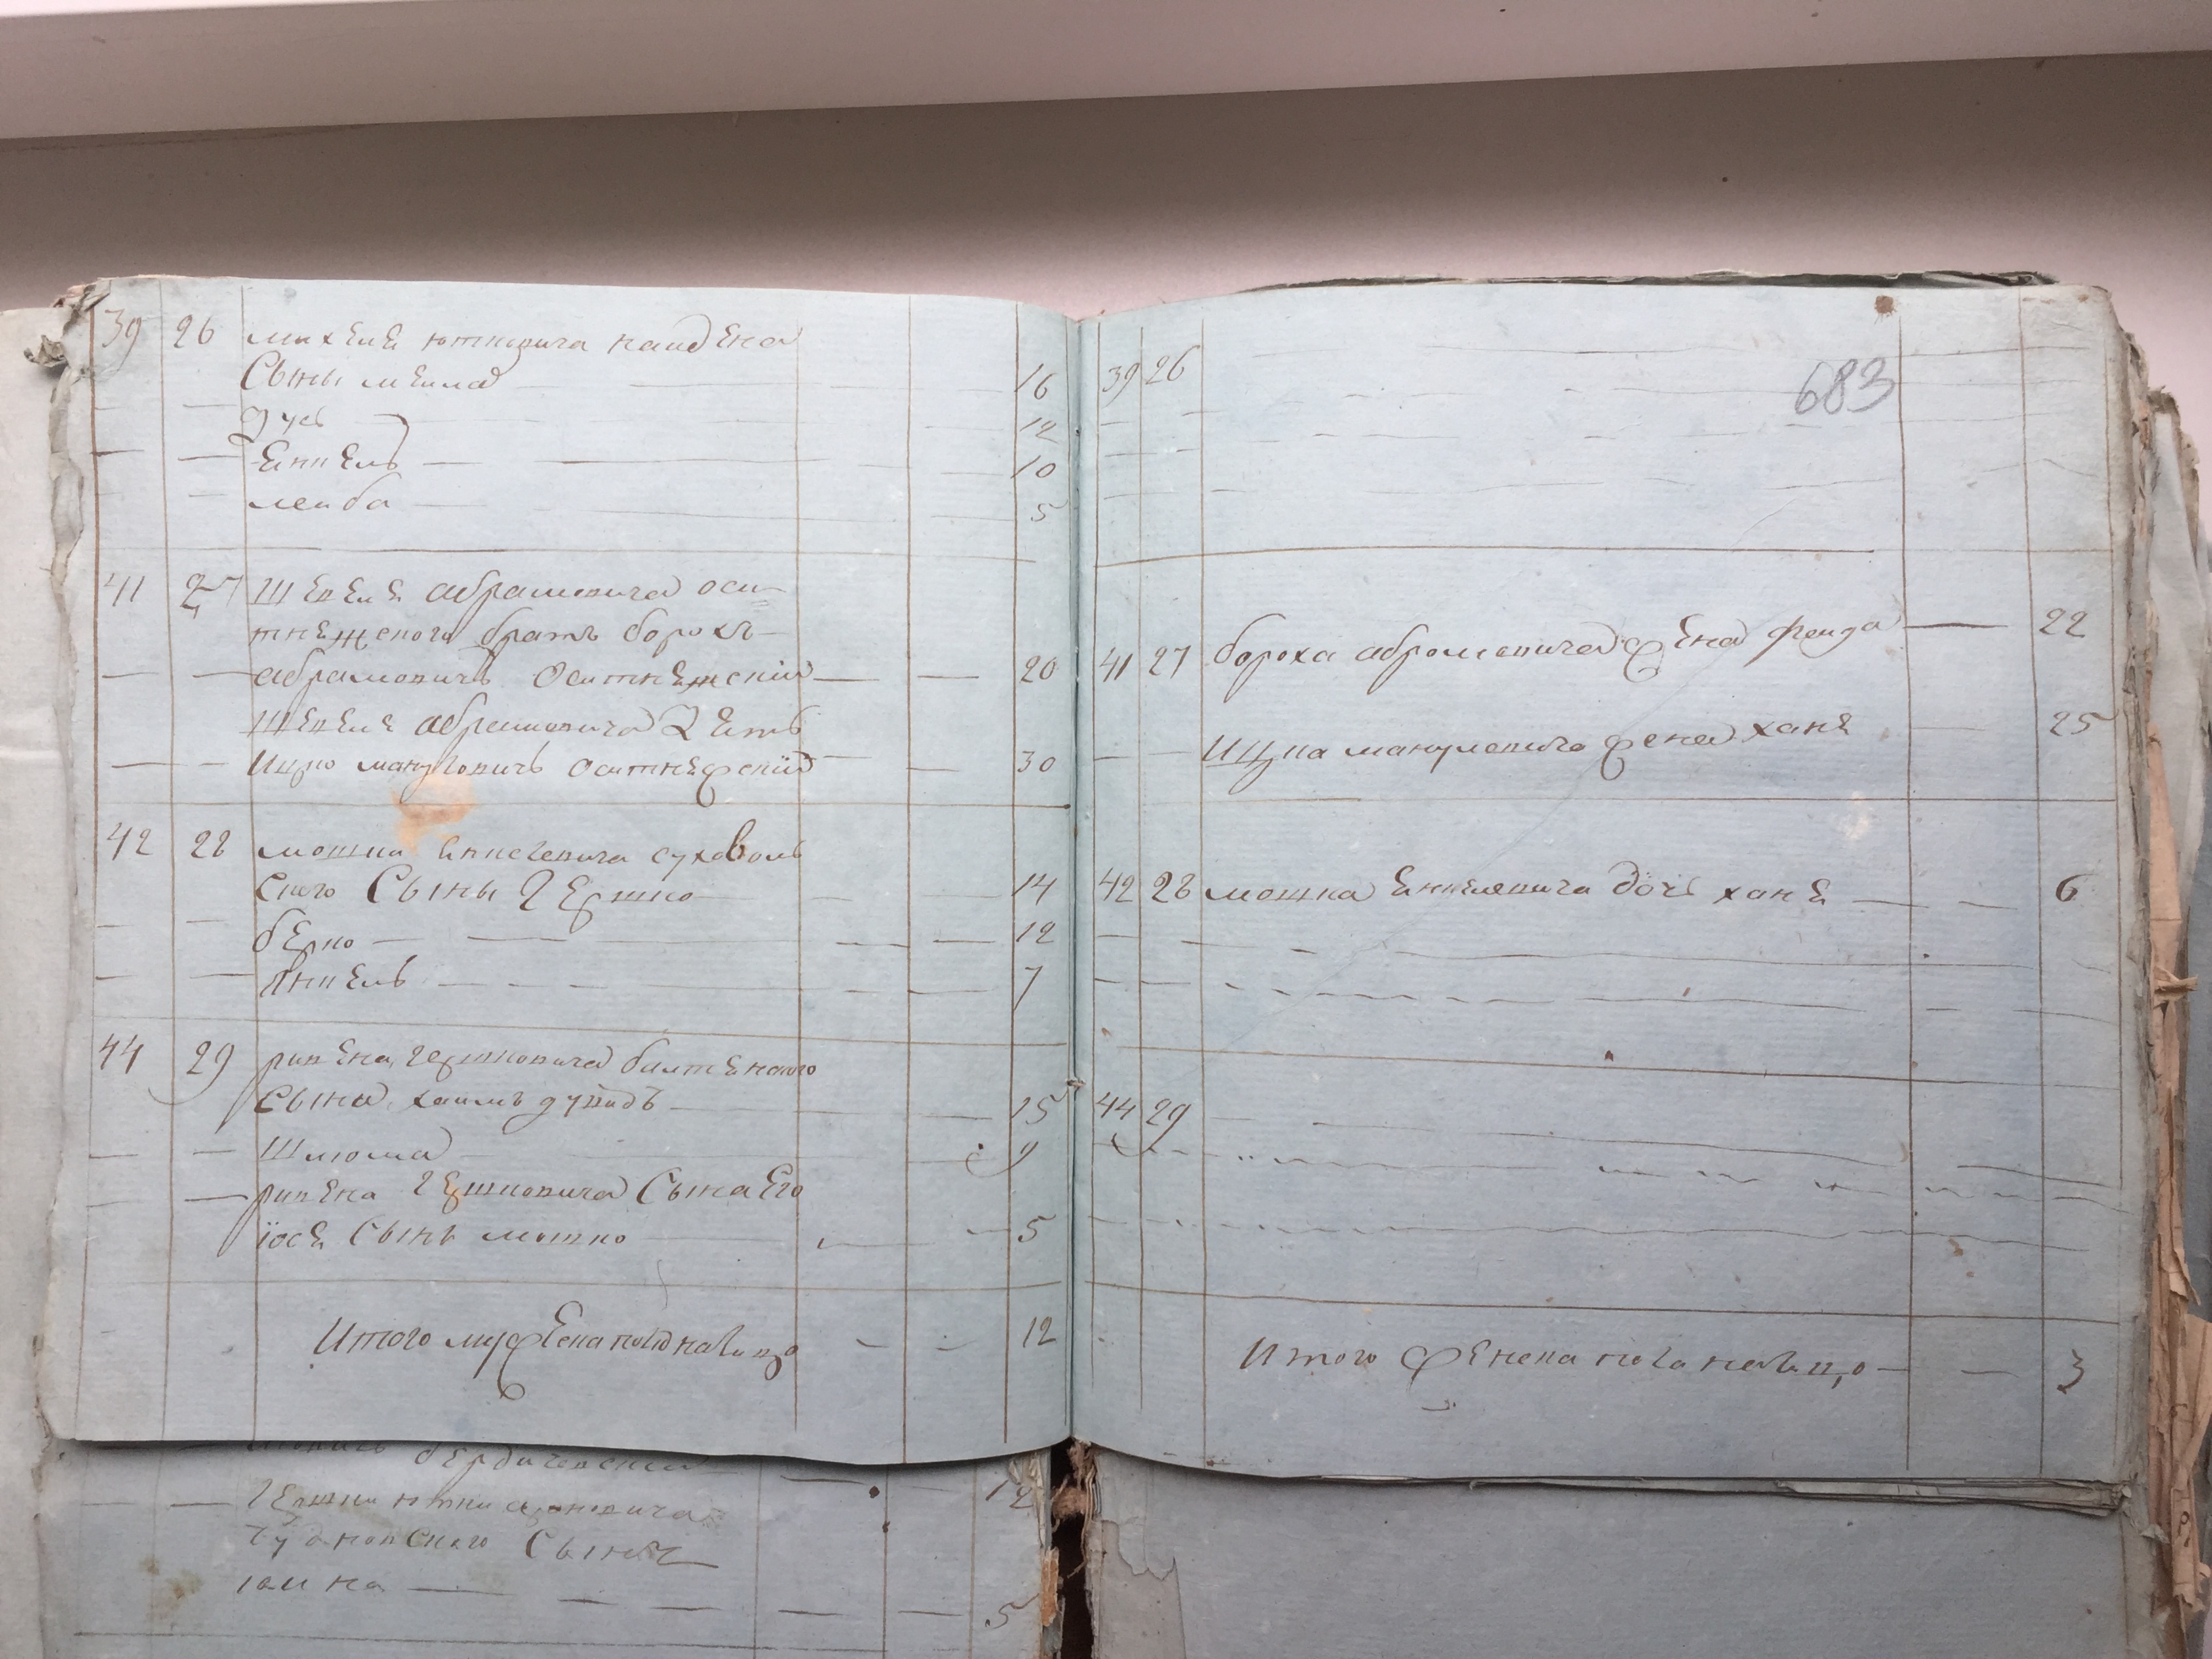 39 26 михеля ютковича найдена
Сыны мейлах 16
дусь 12
Енкель 10
лейба 5
41 27 Шевеля абрамовича оси-
тнежского братъ борохъ
абрамовичъ Оситнежскій 20
Шевеля абрамовича Зять
Ицко мануловичъ оситнежскій 30
42 28 мошка Енкелевича суховоль
ского Сыны Гершко 14
берко 12
Янкель 7
44 29 ривена гершковича балтенского
Сына хаимъ 15
Шлюма 9
ривена Гершковича Сына Его
іосе Сынъ мошко 5
Итого муженска налицо 12
683
39 26
41 27 бороха абромовича жена фейга 22
Ицка мануловича жена хане 25
42 28 мошка Енкелевича дочь хане 6
44 29
Итого женска пола налицо 3
бердичевский 12
Гершки ютки ароновича
Чудновского Сынъ
5